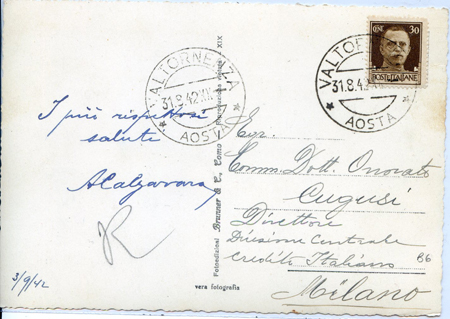 VALTORNENZA
31.8.42.XX
AOSTA
CENT. 30
POSTE ITALIANE
VALTOR
31.8.42
AOSTA
I più rispettosi
saluti
R
3/9/42
Fotoedizioni Brunner & C., Como - Riproduzione vietata - XIX
vera fotografia
Comm. Dott. Onorato
Cugusi
Direttore
Direzione Centrale
Credito Italiano
B6
Milano